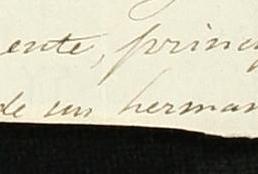 ente, princ
de un herman